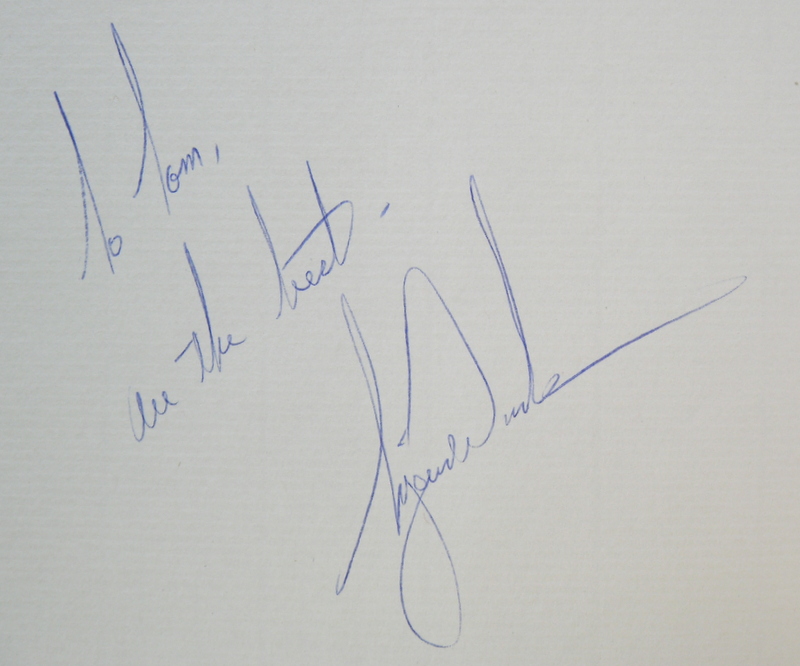 To Tom,
All the best.